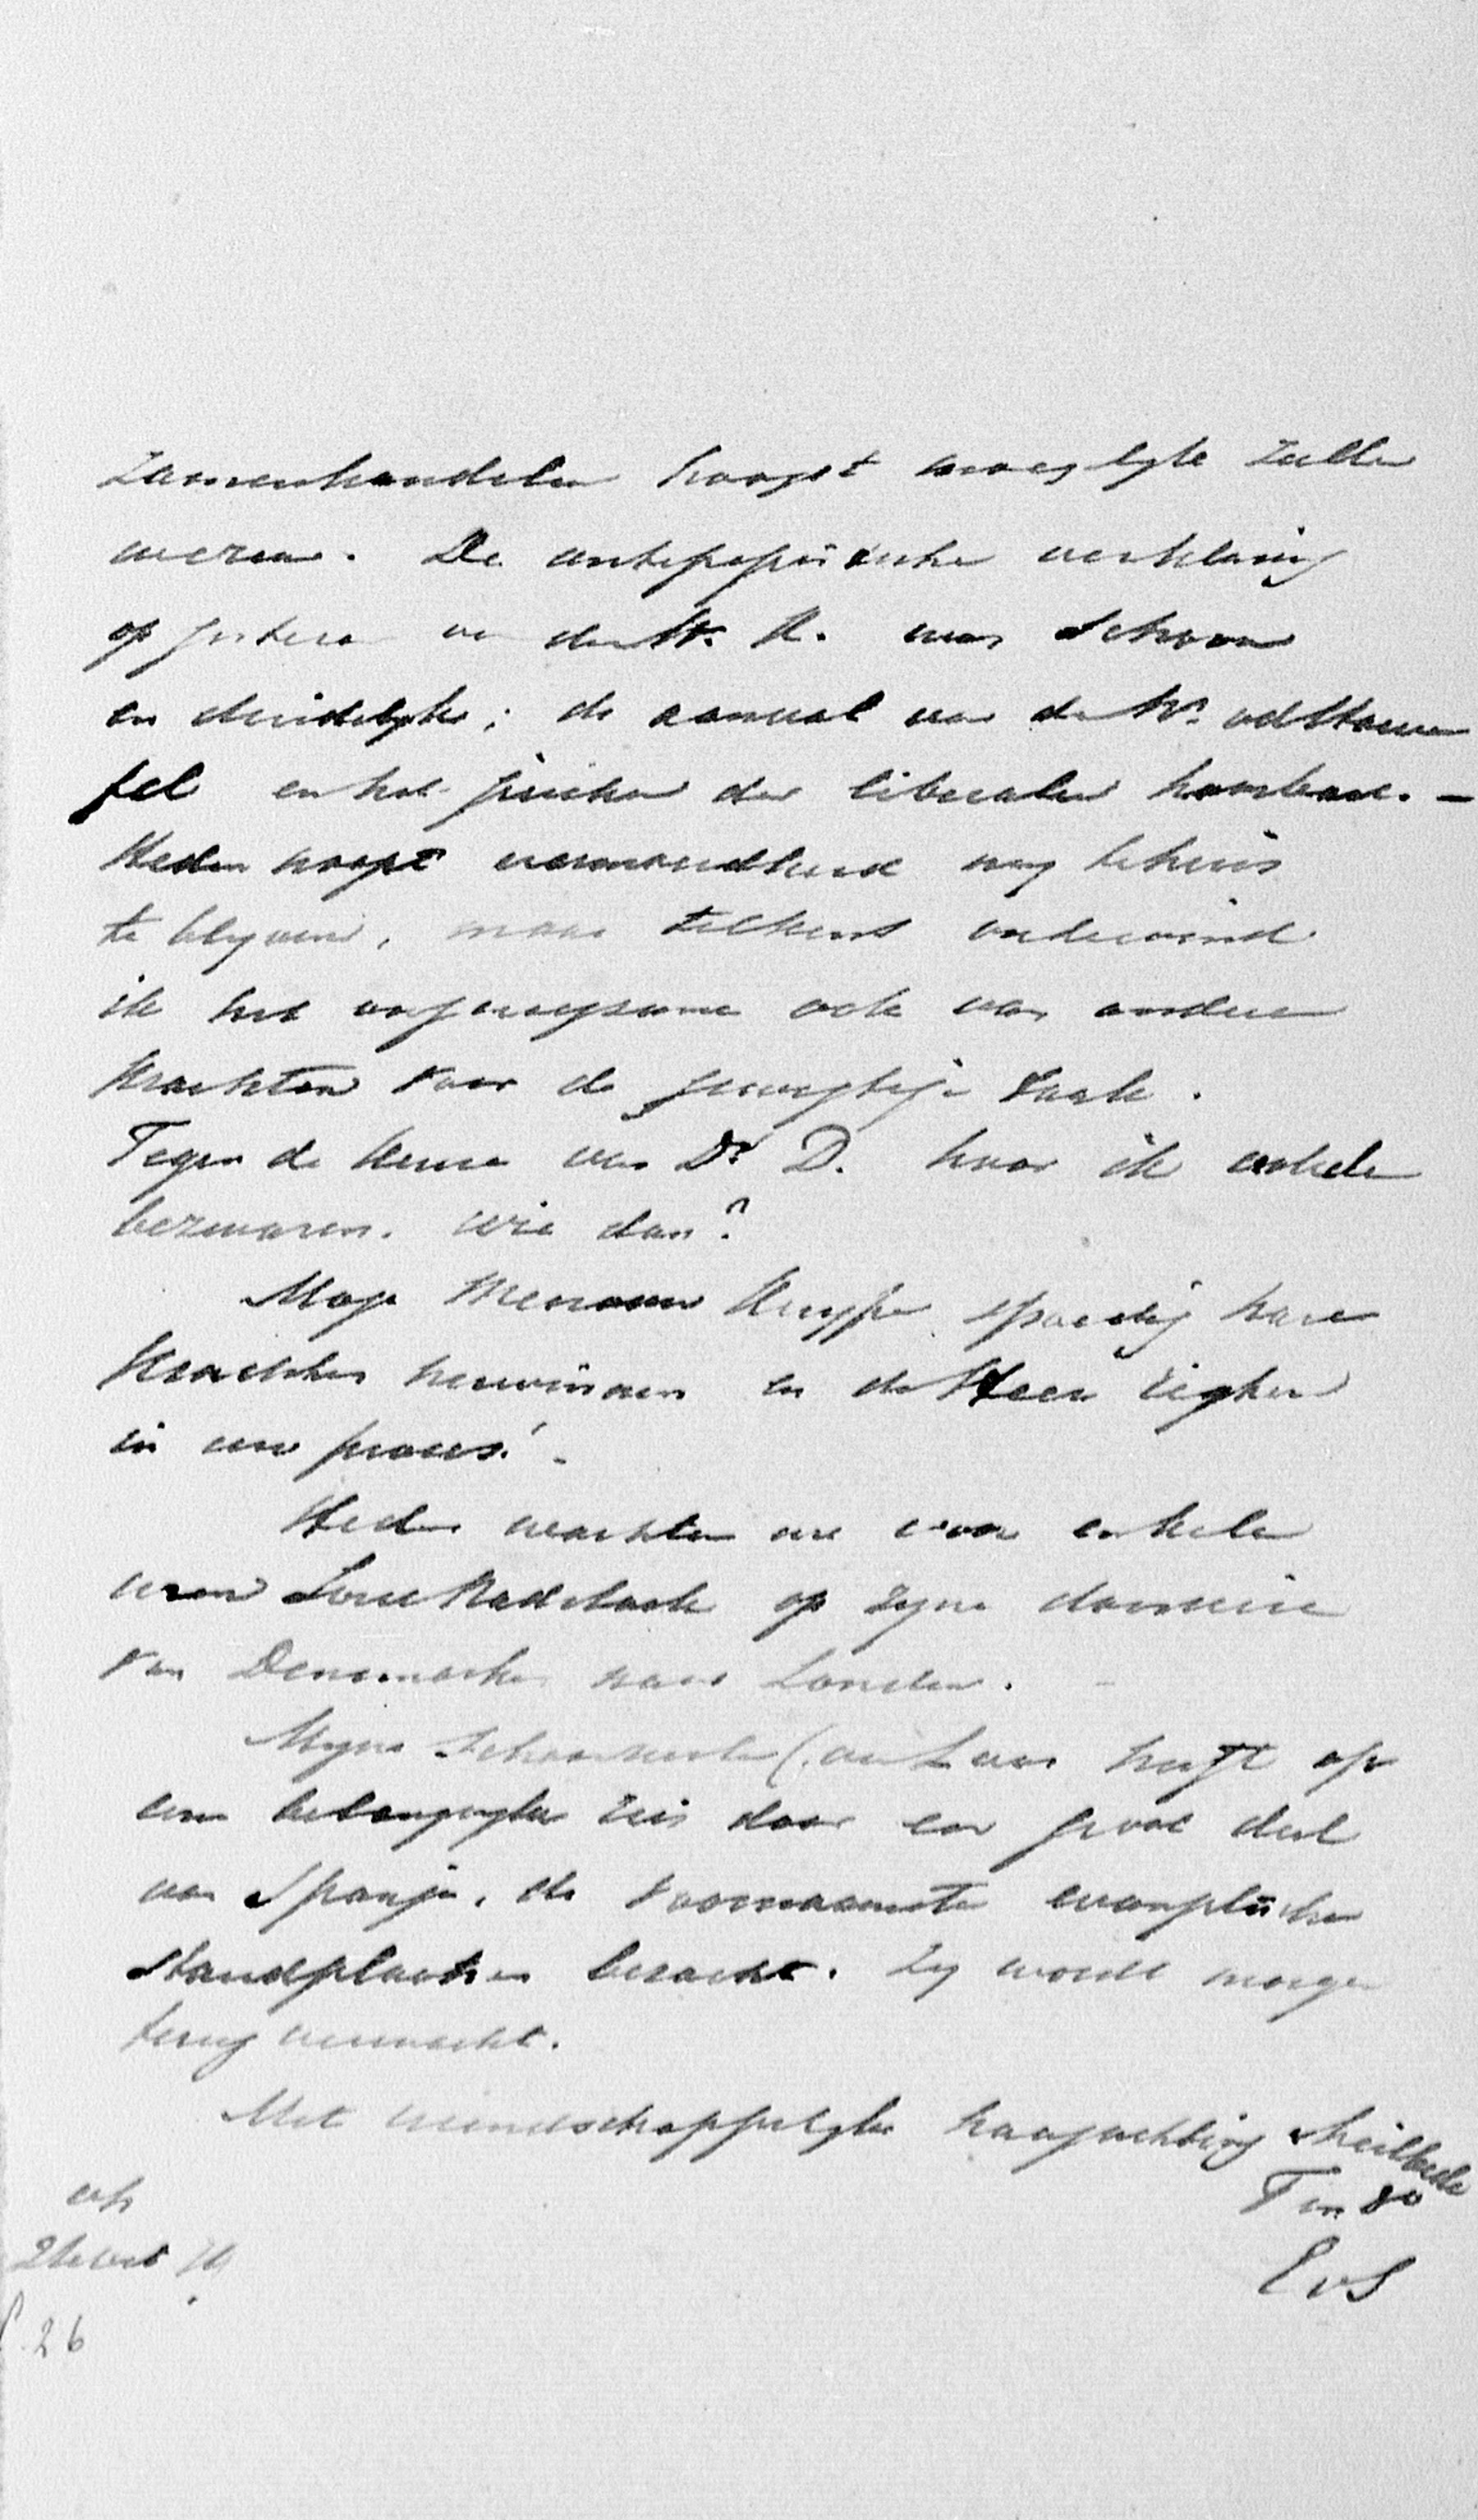 Zamenhandelen hoogst moeijlyk zullen
wezen. De antipapistische verklaring
op gisteren in de St. K. was schoon
en duidelyk; de aanval van de Hr. vdHoeven
fel en het juichen der liberalen hoorbaar. –
Heden hoopt nog tehuis
te blyven, maar telkens ondervind
ik het ongenoegzame ook van andere
krachten voor de gewigtige taak.
Tegen de keuze van Dr D. hoor ik enkele
bezwaren. Wie dan?
Moge Mevrouw Kuyper spoedig hare
krachten herwinnen en de Heer rigten
in uw proces! –
Heden wachten we voor enkele
uren Lord Radstock op zyne doorreis
van Denemarken naar Londen. –
Myne Schoonzuster (van Loon) heeft op
een belangryke reis door een groot deel
van Spanje, de voornaamste evangelische
standplaatsen bezocht. Zy wordt morgen
terug verwacht.
Met vriendschappelyke hoogachting & heilbede
T en 80
EvS
26